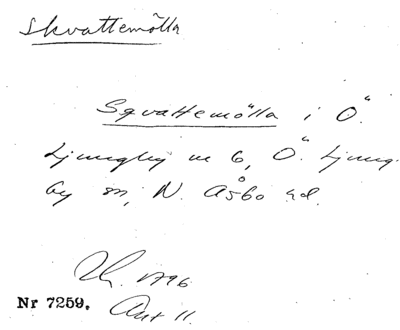 Skvattemölla
Sqvattemölla i Ö.
Ljungby nr 6, Ö. Ljung-
by sn, N. Åsbo hd.
1796.
Nr 7259. Akt 11